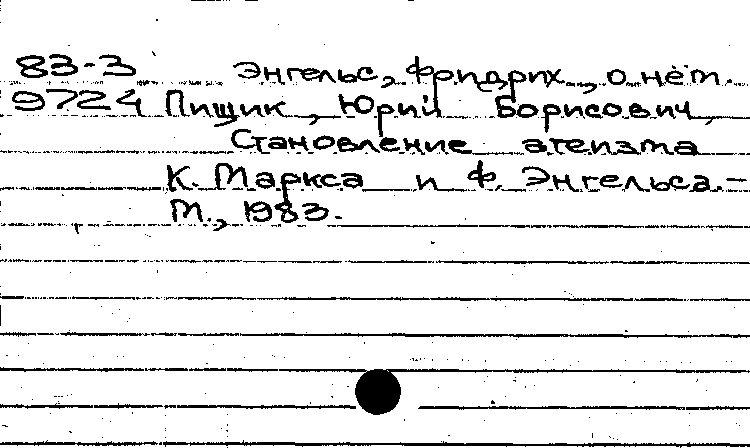 83-3 Энгельс, Фридрих, о нём.
9724 Пищик, Юрий Борисович,
Становление атеизма
К. Маркса и Ф. Энгельса.-
М., 1983.